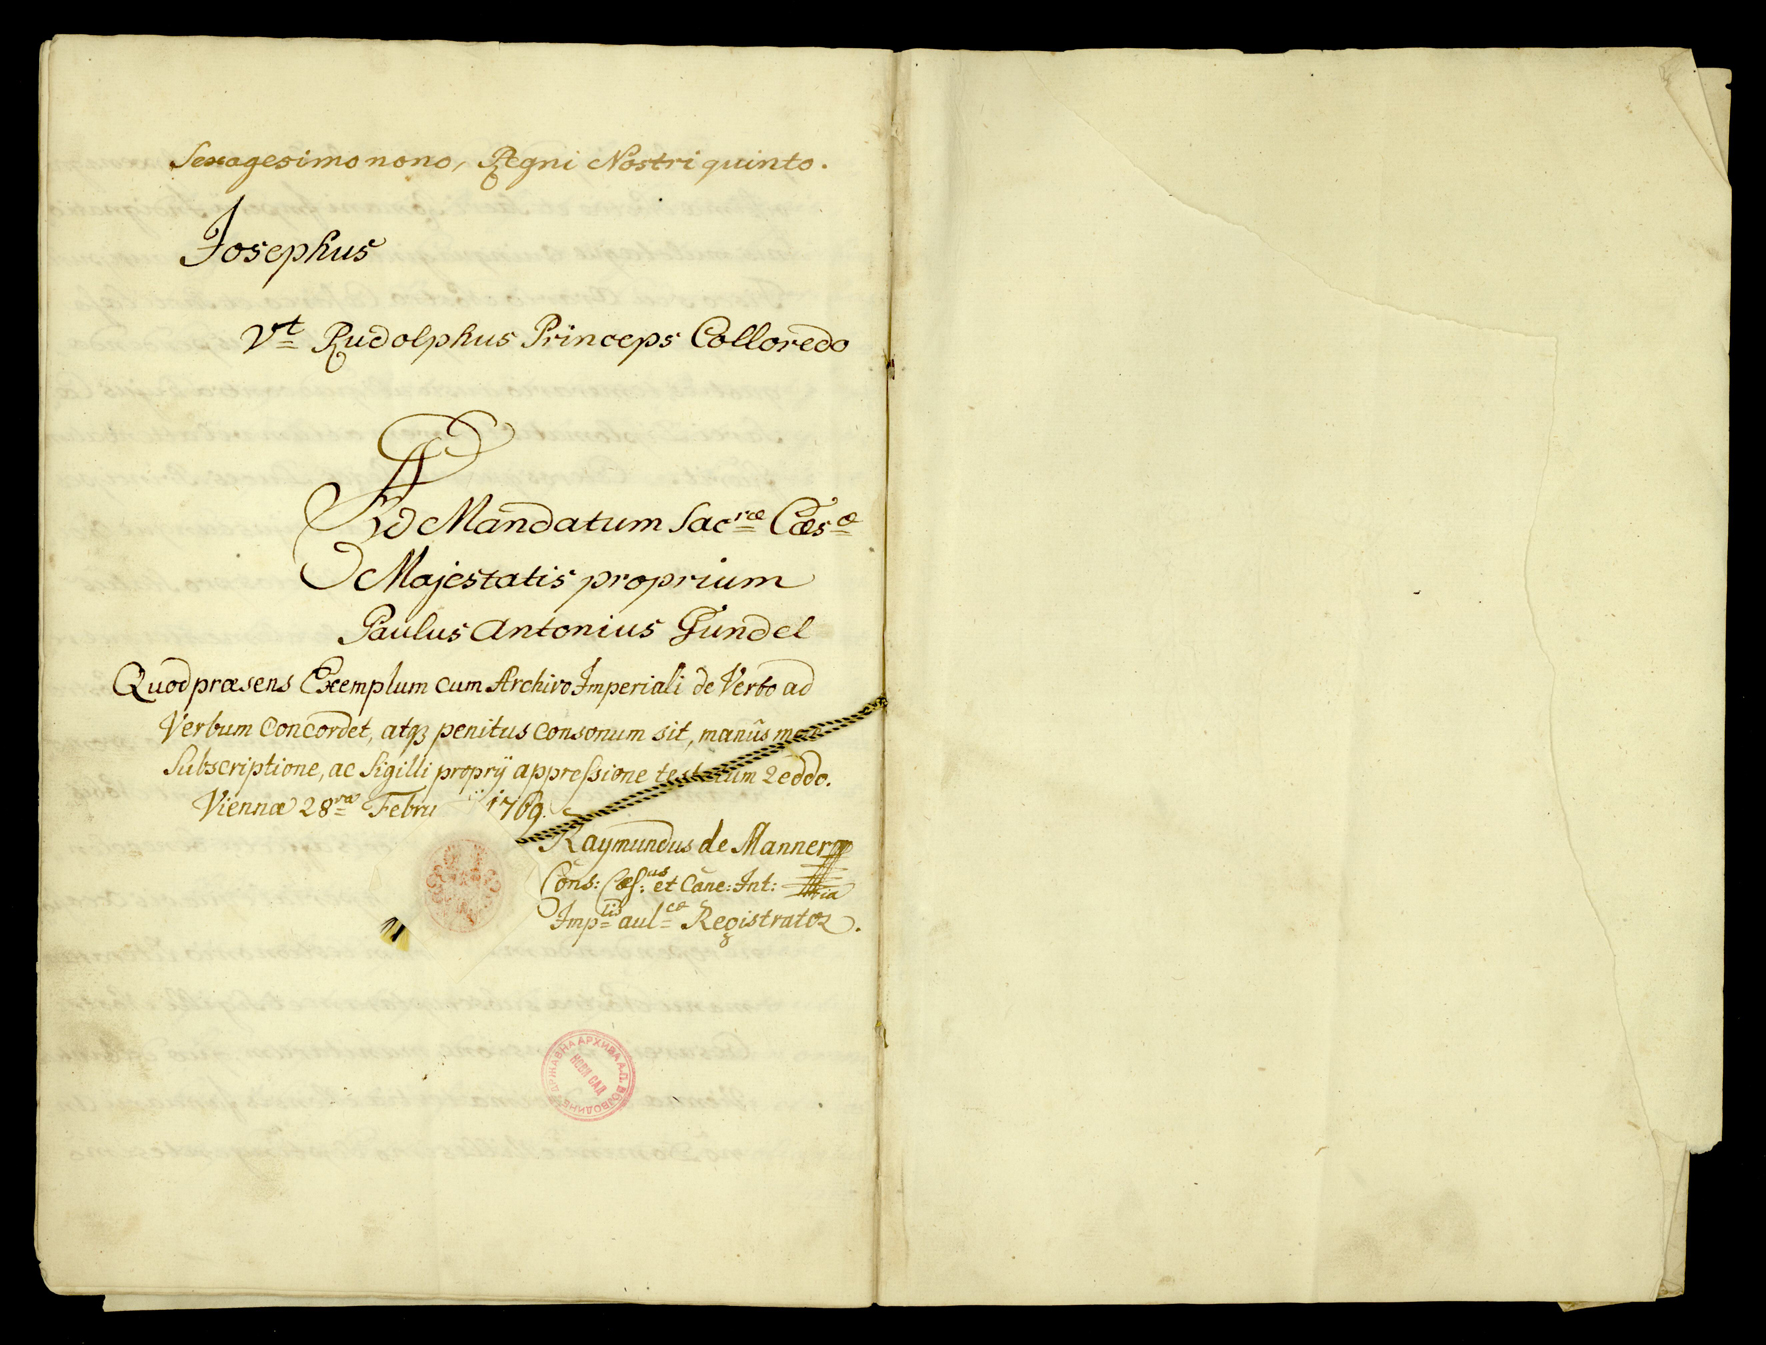 Sexagesimo nono, Regni Nostri quinto.
Josephus
Vt Rudolphus Princeps Colloredo
Ad Mandatum Sacræ Cæsæ
Majestatis proprium
Paulus Antonius Gundel
Quod præsens Exemplum cum Archivo Imperiali de Verbo ad
Verbum Concordet, atq3 penitus consonum sit, manûs meæ
Subscriptione, ac Sigilli proprÿ appressione testatum reddo.
Viennæ 28va Febru 1769.
Raymundus de Manner
Cons: Cæs:us et Canc: Int:
Implis aulcæ Registrator.
ДРЖАВНА АРХИВА А.П. ВОЈВОДИНЕ
НОВИ САД